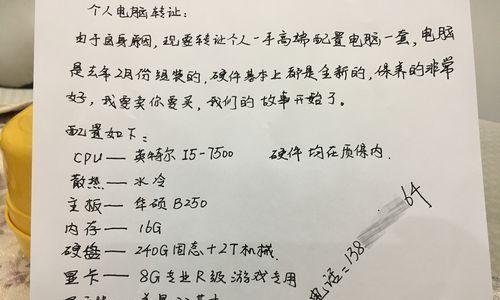 个人电脑转让:
由于自身原因,现要转让个人一手高端配置电脑一套,电脑
是去年2月份组装的,硬件基本上都是全新的,保养的非常
好,我要卖你要买,我们的故事开始了。
配置如下:
CPU — 英特尔 I5-7500 硬件均在质保内.
散热 — 水冷
主板 — 华硕 B250
内存 — 16G
硬盘 — 240G固态+2T机械.
显卡 — 8G专业R级游戏专用
电话=138 64